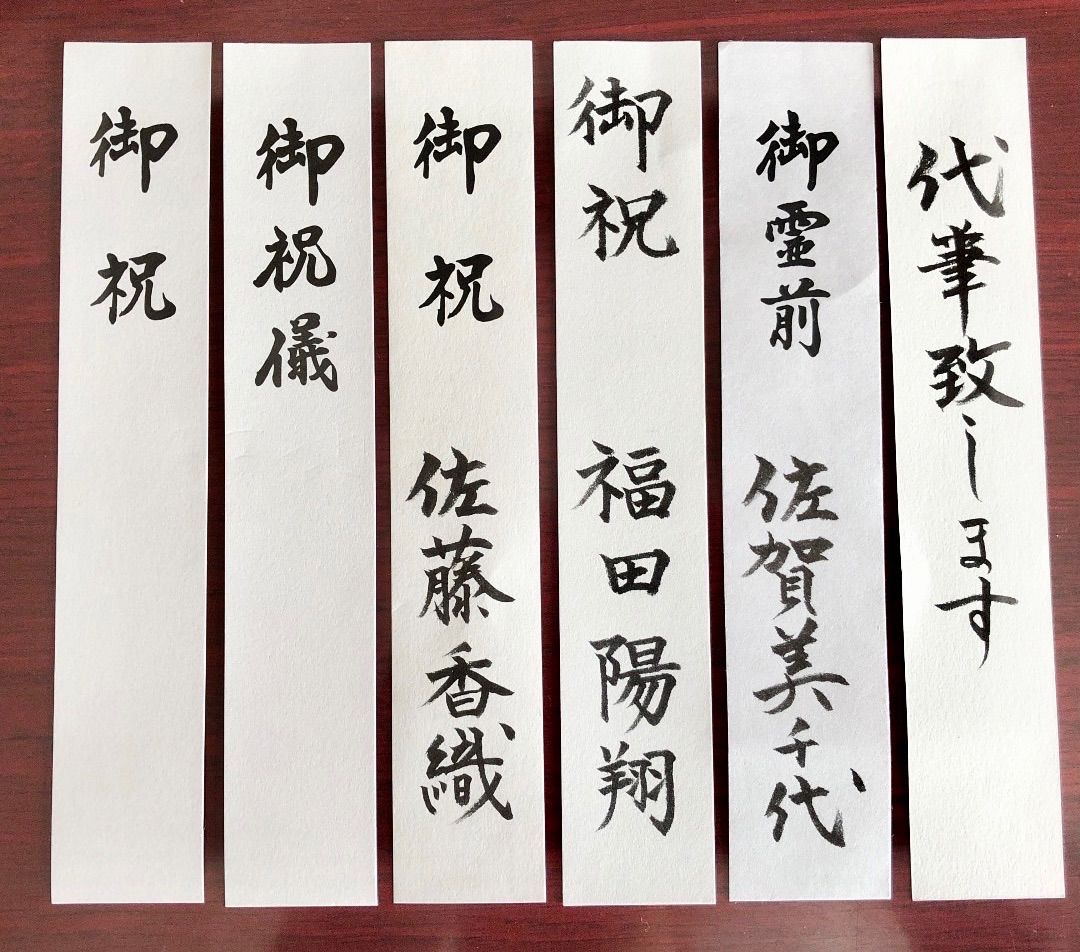 御祝
御祝儀
御祝 佐藤香織
御祝 福田陽翔
御霊前 佐賀美千代
代筆致します